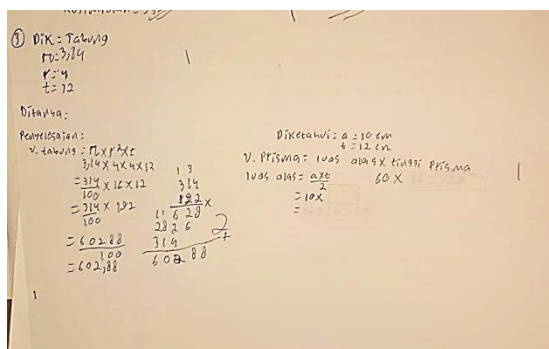 ③ Dik = Tabung
π = 3,14
r = 4
t = 12
Ditanya:
Penyelesaian:
V. tabung = π x r² x t
3,14 x 4 x 4 x 12
= 314/100 x 16 x 12
= 314/100 x 192
= 60288/100
= 602,88
1 3
314
192 x
11 6 28
282 6
314 +
602 88
2
Diketahui: a = 10 cm
t = 12 cm
V. Prisma = luas alas x tinggi Prisma
luas alas = axt/2
60 x
= 10x
=